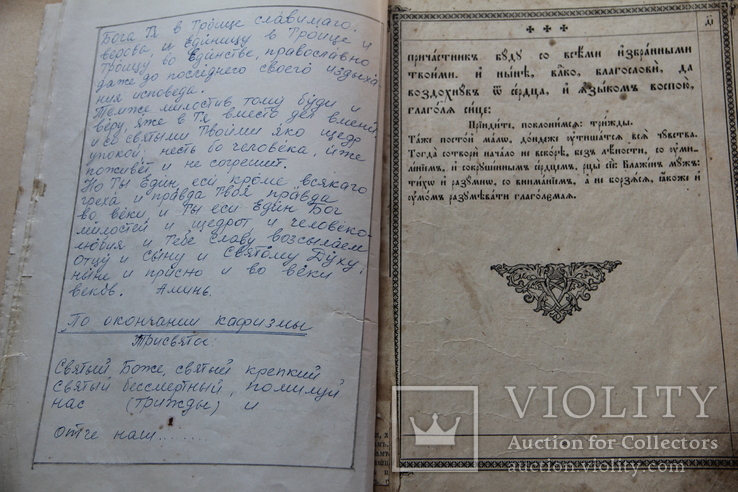 Бога Тя в Троице славимаго.
веровы, и Единицу в Троице и
Троицу во единстве, православно
даже до последнего своего издыха
ния исповеда.
Темже милостив тому буди и
веру, яже в Тя вместо дел вмени
и со святыми Твоими яко щедр
упокой: несть бо человека, иже
поживет и не согрешит.
Но Ты Един, еси кроме всякаго
греха и правда Твоя правда
во веки, и Ты еси Един Бог
милостей и щедрот и человеко-
любия и Тебе славу возсылаем
отцу и сыну и Святому Духу,
ныне и присно и во веки
веков. Аминь.
По окончании кафизмы
Трисвятое
Святый Боже, святый крепкий
святый бессмертный, помилуй
нас (трижды) и
отче наш......
причастникъ буду со всѣми избранными
твоими. И нынѣ, влко, благослови, да
воздохнувъ ѿ сердца, и языкомъ воспою,
глаголя сице:
Прїидите, поклонимся: трижды.
Таже постой мало, дондеже утишатся вся чувства.
Тогда сотвори начало не вскорѣ, безъ лѣности, со уми-
ленїемъ, и сокрушеннымъ сердцемъ. рцы сїе Блаженъ мужъ:
тихо и разумно, со вниманїемъ, а не борзяся, якоже и
умомъ разумѣвати глаголемая.
VIOLITY
Auction for Collectors
auction.violity.com